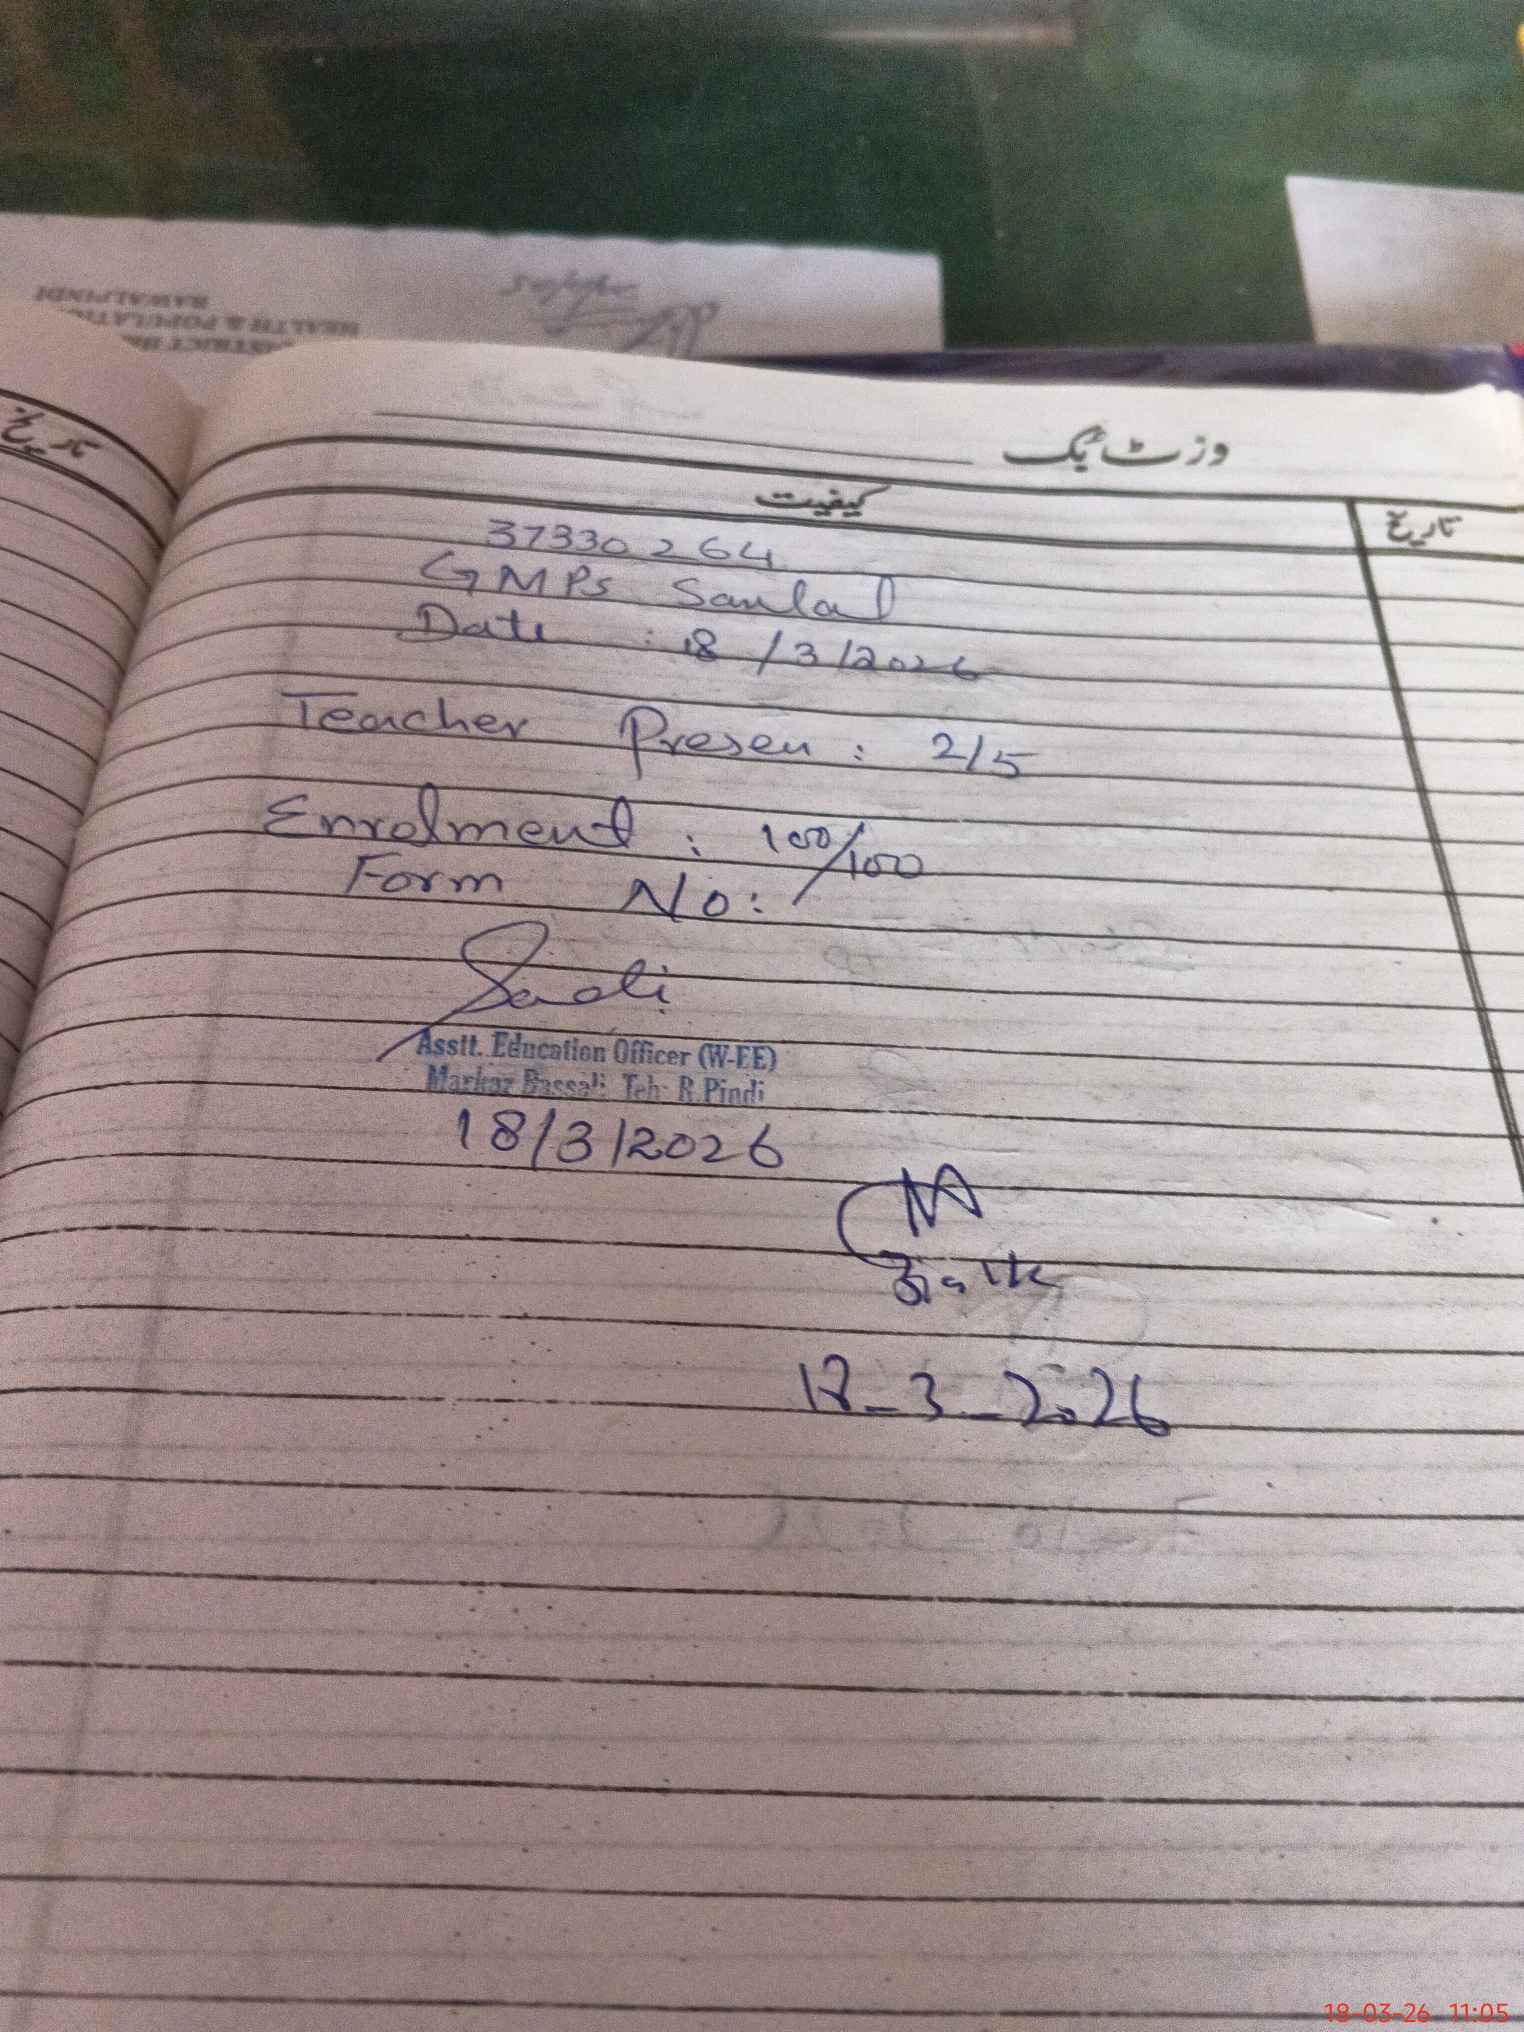 RAWALPINDI
HEALTH & POPULATION
تاریخ
وزٹ بُک
کیفیت
تاریخ
37330264
GMPS
Date : 18/3/2026
Teacher Presen : 2/5
Enrolment : 100/100
Form No:
Sadi
Asstt. Education Officer (W-EE)
Markaz Bassali Teh: R.Pindi
18/3/2026
18-3-2026
18-03-26 11:05